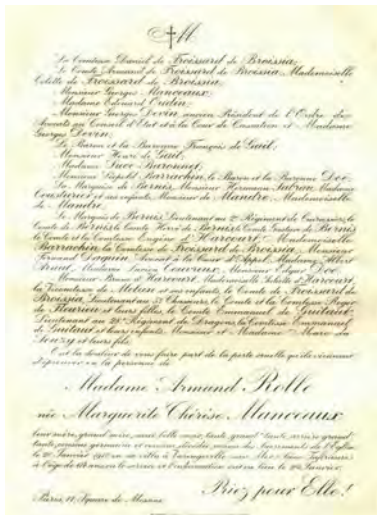 M
La Comtesse Daniel de Froissard de Broissia,
Le Comte Armand de Froissard de Broissia, Mademoiselle
Colette de Froissard de Broissia,
Monsieur Georges Manceaux,
Madame Edouard Oudin,
Monsieur Georges Devin, ancien Président de l'Ordre des
Avocats au Conseil d'Etat et à la Cour de Cassation et Madame
Georges Devin,
Le Baron et la Baronne François de Gail,
Monsieur Henri de Gail,
Madame
Monsieur Léopold Barrachin, le Baron et la Baronne Doë,
La Marquise de Bernis, Monsieur Hermann Madame
et ses enfants, Monsieur de Mandre, Mademoiselle
de Mandre,
Le Marquis de Bernis, Lieutenant au Régiment de Cuirassiers, le
Comte de Bernis, le Comte Hervé de Bernis, le Comte Gaston de Bernis,
le Comte et la Comtesse Eugène d'Harcourt, Mademoiselle
Barrachin, la Comtesse de Froissard de Broissia, Monsieur
Fernand Daguin, Avocat à la Cour d'Appel, Madame Albert
Madame Monsieur Edgar Doë,
Monsieur d'Harcourt, Mademoiselle d'Harcourt,
la Vicomtesse de Melun et ses enfants, le Comte de Froissard de
Broissia, Lieutenant au Chasseurs, le Comte et la Comtesse Roger
de et leurs filles, le Comte Emmanuel de Guitaut,
Lieutenant au Régiment de Dragons, la Comtesse Emmanuel
de Guitaut et leurs enfants, Monsieur et Madame Marc du
Souzy et leurs fils
Ont la douleur de vous faire part de la perte cruelle qu'ils viennent
d'éprouver en la personne de
Madame Armand Rolle
née Marguerite Thérèse Manceaux
leur mère, grand'mère, sœur, belle-sœur, tante, grand'tante, arrière-grand'
tante, cousine germaine et cousine, décédée, munie des Sacrements de l'Eglise,
le Janvier en sa villa à Varengeville sur Mer (Seine Inférieure)
à l'âge de ans
Priez pour Elle!
Paris, Square de Messine